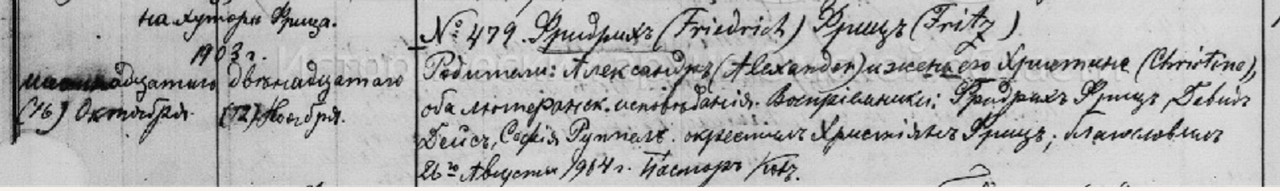 на хуторѣ Фрица.
1903 г.
шестнадцатаго двѣнадцатаго
(16) Октября. (12) Ноября.
№ 479. Фридрихъ (Friedrich) Фрицъ (Fritz)
Родители: Александръ (Alexander) и жена его Христина (Christina),
оба лютеранск. исповѣданія. Воспріемники: Фридрихъ Фрицъ, Давидъ
Гейсъ, София Руппель. окрестилъ Христіянъ Фрицъ; благословилъ
26го Августа 1904 г. Пасторъ